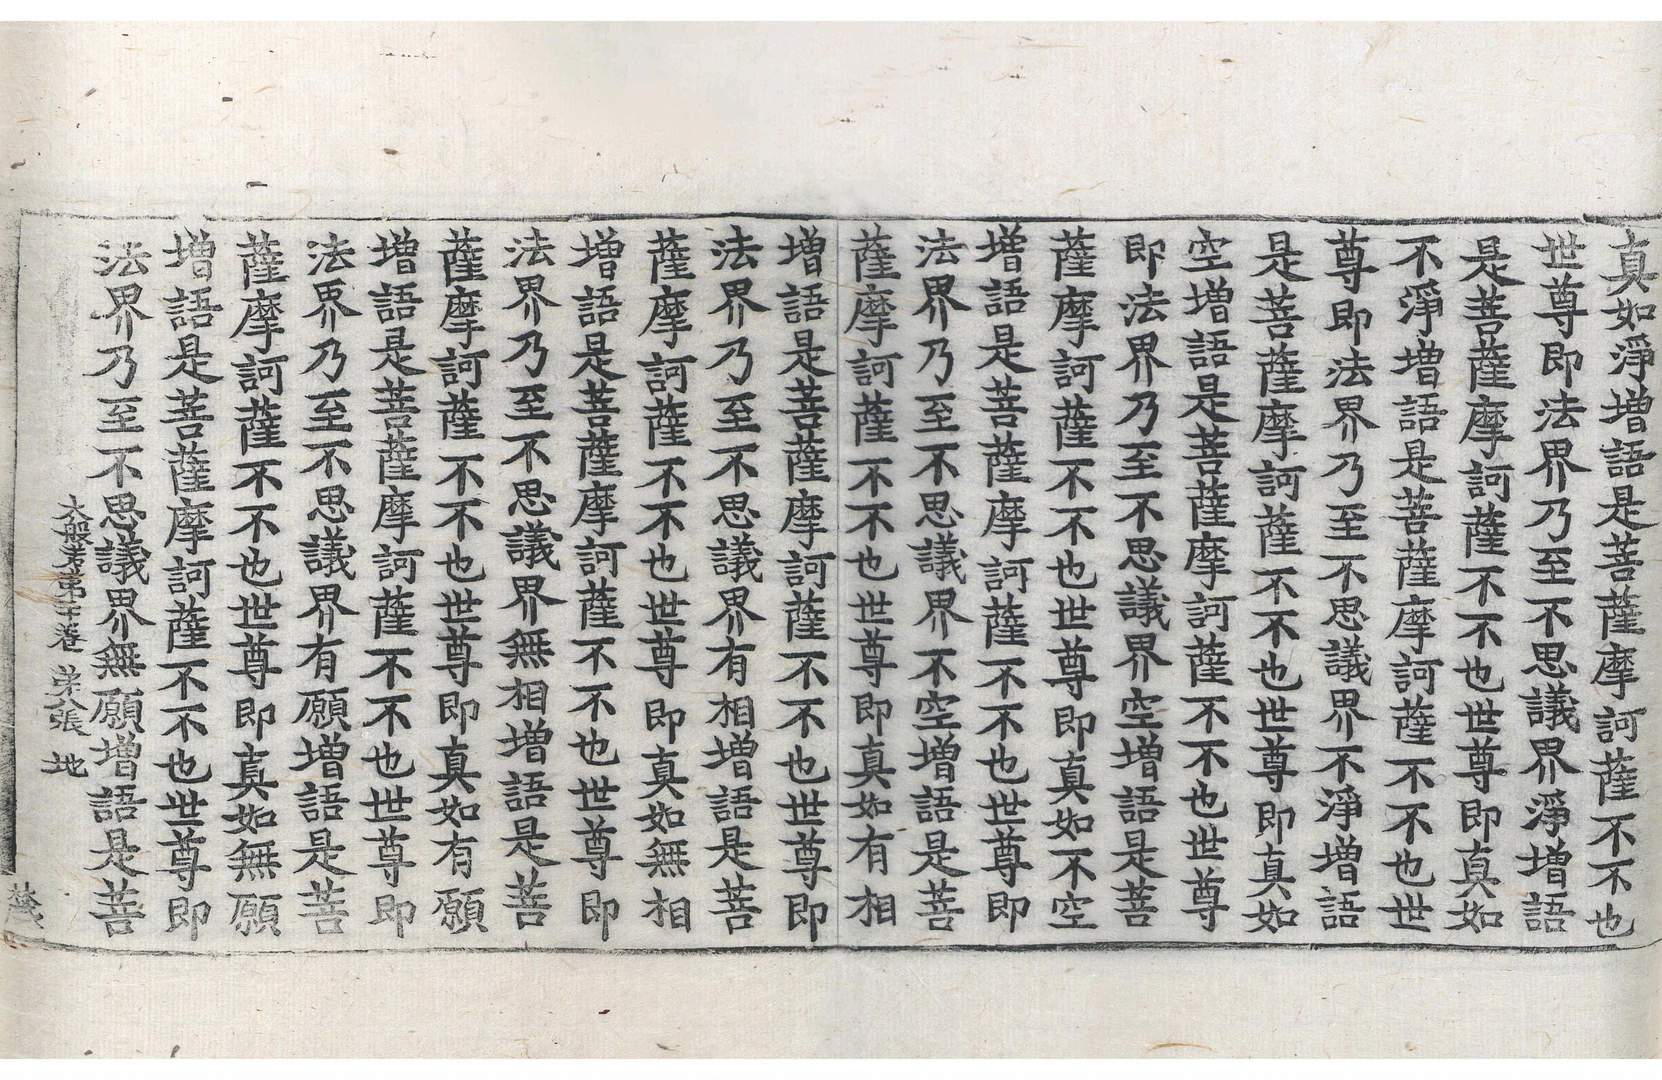 真如淨增語是菩薩摩訶薩不不也
世尊即法界乃至不思議界淨增語
是菩薩摩訶薩不不也世尊即真如
不淨增語是菩薩摩訶薩不不也世
尊即法界乃至不思議界不淨增語
是菩薩摩訶薩不不也世尊即真如
空增語是菩薩摩訶薩不不也世尊
即法界乃至不思議界空增語是菩
薩摩訶薩不不也世尊即真如不空
增語是菩薩摩訶薩不不也世尊即
法界乃至不思議界不空增語是菩
薩摩訶薩不不也世尊即真如有相
增語是菩薩摩訶薩不不也世尊即
法界乃至不思議界有相增語是菩
薩摩訶薩不不也世尊即真如無相
增語是菩薩摩訶薩不不也世尊即
法界乃至不思議界無相增語是菩
薩摩訶薩不不也世尊即真如有願
增語是菩薩摩訶薩不不也世尊即
法界乃至不思議界有願增語是菩
薩摩訶薩不不也世尊即真如無願
增語是菩薩摩訶薩不不也世尊即
法界乃至不思議界無願增語是菩
大般若第十一卷 第八張 地